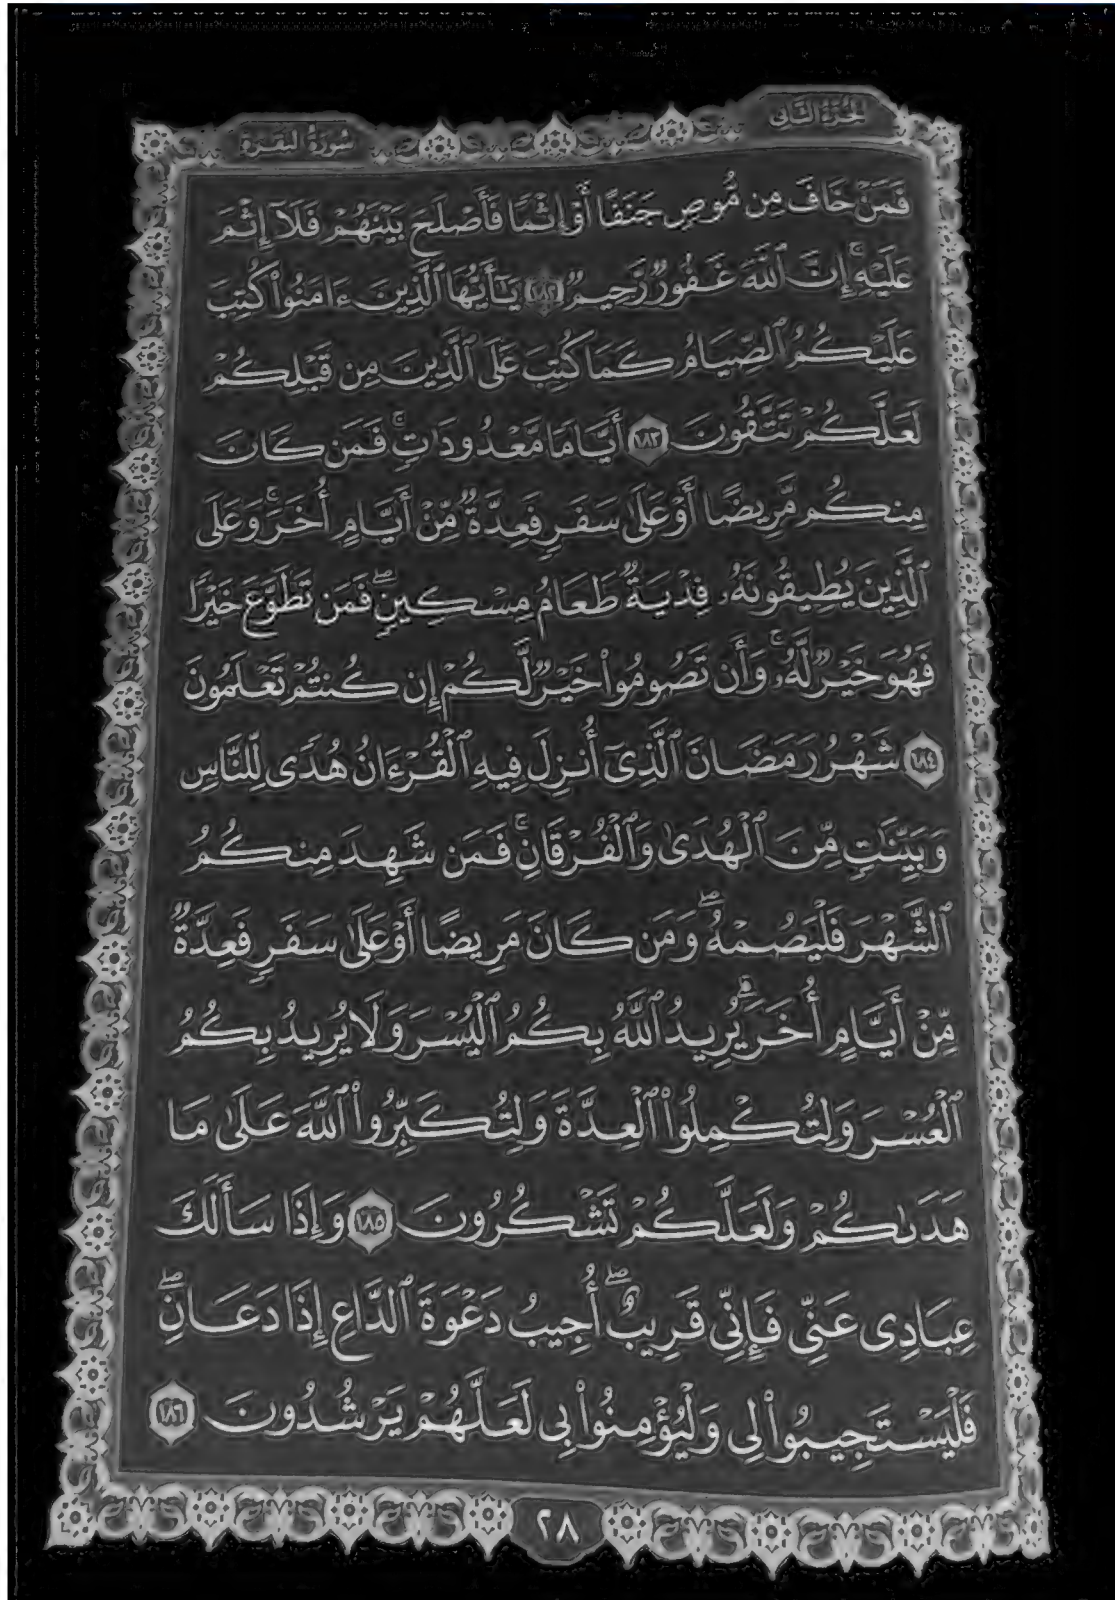 الجزء الثاني
سورة البقرة
فَمَنْ خَافَ مِن مُّوصٍ جَنَفًا أَوْ إِثْمًا فَأَصْلَحَ بَيْنَهُمْ فَلَآ إِثْمَ
عَلَيْهِ ۚ إِنَّ ٱللَّهَ غَفُورٌ رَّحِيمٌ ١٨٢ يَـٰٓأَيُّهَا ٱلَّذِينَ ءَامَنُوا۟ كُتِبَ
عَلَيْكُمُ ٱلصِّيَامُ كَمَا كُتِبَ عَلَى ٱلَّذِينَ مِن قَبْلِكُمْ
لَعَلَّكُمْ تَتَّقُونَ ١٨٣ أَيَّامًا مَّعْدُودَٰتٍ ۚ فَمَن كَانَ
مِنكُم مَّرِيضًا أَوْ عَلَىٰ سَفَرٍ فَعِدَّةٌ مِّنْ أَيَّامٍ أُخَرَ ۚ وَعَلَى
ٱلَّذِينَ يُطِيقُونَهُۥ فِدْيَةٌ طَعَامُ مِسْكِينٍ ۖ فَمَن تَطَوَّعَ خَيْرًا
فَهُوَ خَيْرٌ لَّهُۥ ۚ وَأَن تَصُومُوا۟ خَيْرٌ لَّكُمْ إِن كُنتُمْ تَعْلَمُونَ
١٨٤ شَهْرُ رَمَضَانَ ٱلَّذِىٓ أُنزِلَ فِيهِ ٱلْقُرْءَانُ هُدًى لِّلنَّاسِ
وَبَيِّنَـٰتٍ مِّنَ ٱلْهُدَىٰ وَٱلْفُرْقَانِ ۚ فَمَن شَهِدَ مِنكُمُ
ٱلشَّهْرَ فَلْيَصُمْهُ ۖ وَمَن كَانَ مَرِيضًا أَوْ عَلَىٰ سَفَرٍ فَعِدَّةٌ
مِّنْ أَيَّامٍ أُخَرَ ۗ يُرِيدُ ٱللَّهُ بِكُمُ ٱلْيُسْرَ وَلَا يُرِيدُ بِكُمُ
ٱلْعُسْرَ وَلِتُكْمِلُوا۟ ٱلْعِدَّةَ وَلِتُكَبِّرُوا۟ ٱللَّهَ عَلَىٰ مَا
هَدَىٰكُمْ وَلَعَلَّكُمْ تَشْكُرُونَ ١٨٥ وَإِذَا سَأَلَكَ
عِبَادِى عَنِّى فَإِنِّى قَرِيبٌ ۖ أُجِيبُ دَعْوَةَ ٱلدَّاعِ إِذَا دَعَانِ ۖ
فَلْيَسْتَجِيبُوا۟ لِى وَلْيُؤْمِنُوا۟ بِى لَعَلَّهُمْ يَرْشُدُونَ ١٨٦
٢٨